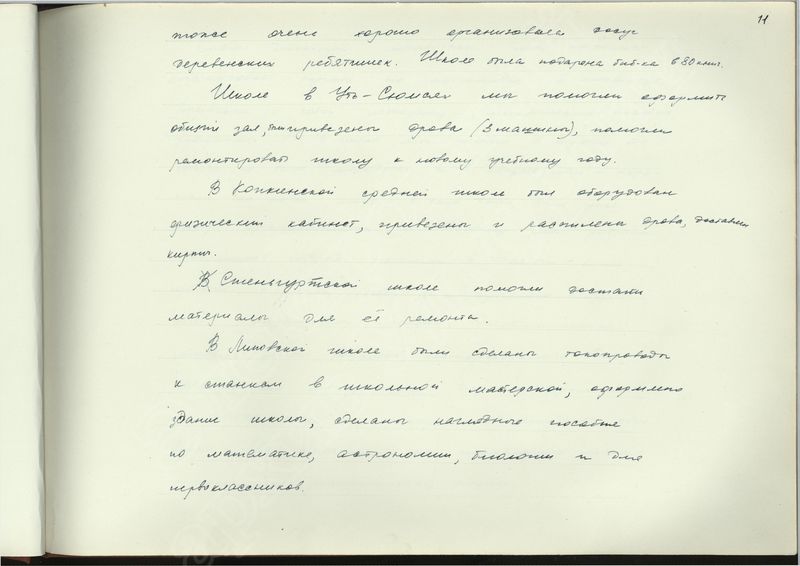 11
тоже очень хорошо организовали досуг
деревенских ребятишек. Школе была подарена биб-ка в 80 книг.
Школе в Усть-Сюмсях мы помогли оформить
общий зал, привезены дрова (3 машины), помогли
ремонтировать школу к новому учебному году.
В Копкинской средней школе был оборудован
физический кабинет, привезены и распилены дрова, доставлен
кирпич.
В Стеньгуртской школе помогли достать
материалы для её ремонта.
В Липовской школе были сделаны токопроводы
к станкам в школьной мастерской, оформлено
здание школы, сделаны наглядные пособия
по математике, астрономии, биологии и для
первоклассников.